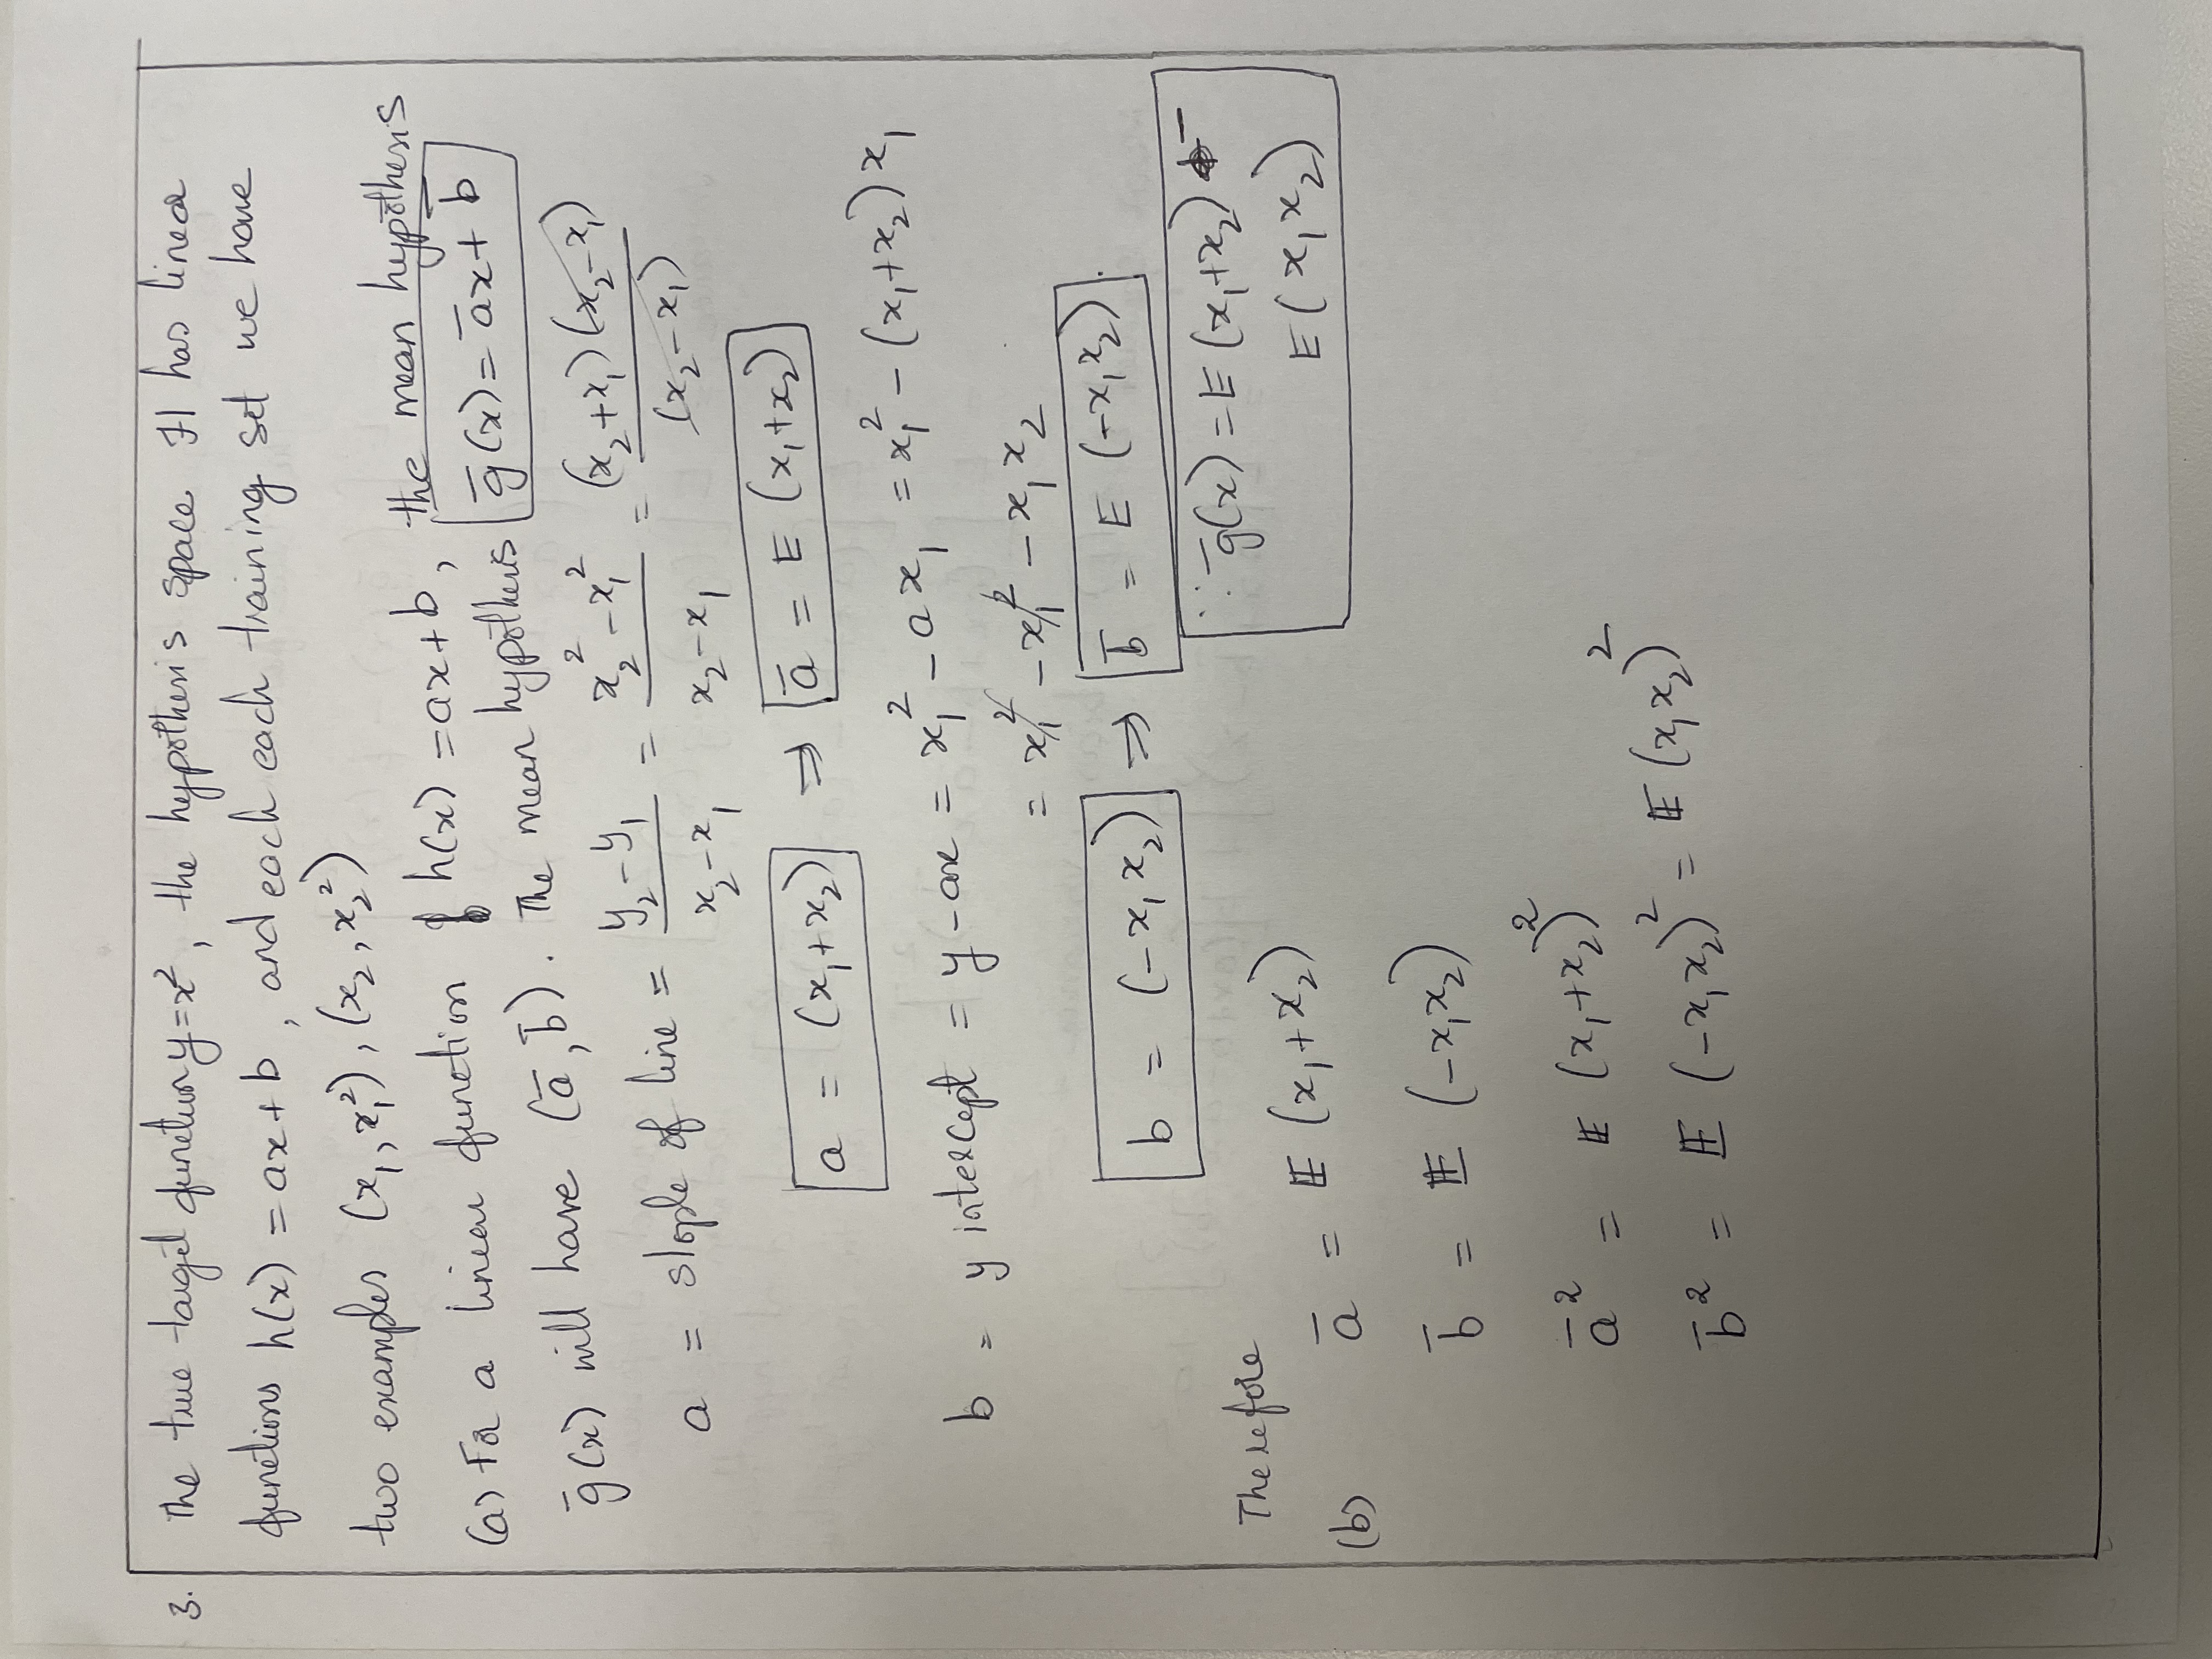 3. The true target function y=x², the hypothesis space H has linear
functions h(x) = ax+b, and each each training set we have
two examples (x₁, x₁²), (x₂, x₂²)
(a) For a linear function h(x) = ax+b, the mean hypothesis
g̅(x) will have (a̅, b̅). The mean hypothesis g̅(x) = a̅x + b̅
a = slople of line = (y₂-y₁)/(x₂-x₁) = (x₂²-x₁²)/(x₂-x₁) = (x₂+x₁)(x₂-x₁)/(x₂-x₁)
a = (x₁+x₂) ⇒ a̅ = E (x₁+x₂)
b = y intercept = y-ax = x₁² - ax₁ = x₁² - (x₁+x₂)x₁
= x₁² - x₁² - x₁x₂
b = (-x₁x₂) ⇒ b̅ = E (-x₁x₂).
∵ g̅(x) = E(x₁+x₂) -
E(x₁x₂)
Therefore
(b) a̅ = E (x₁+x₂)
b̅ = E (-x₁x₂)
a̅² = E (x₁+x₂)²
b̅² = E (-x₁x₂)² = E (x₁x₂)²